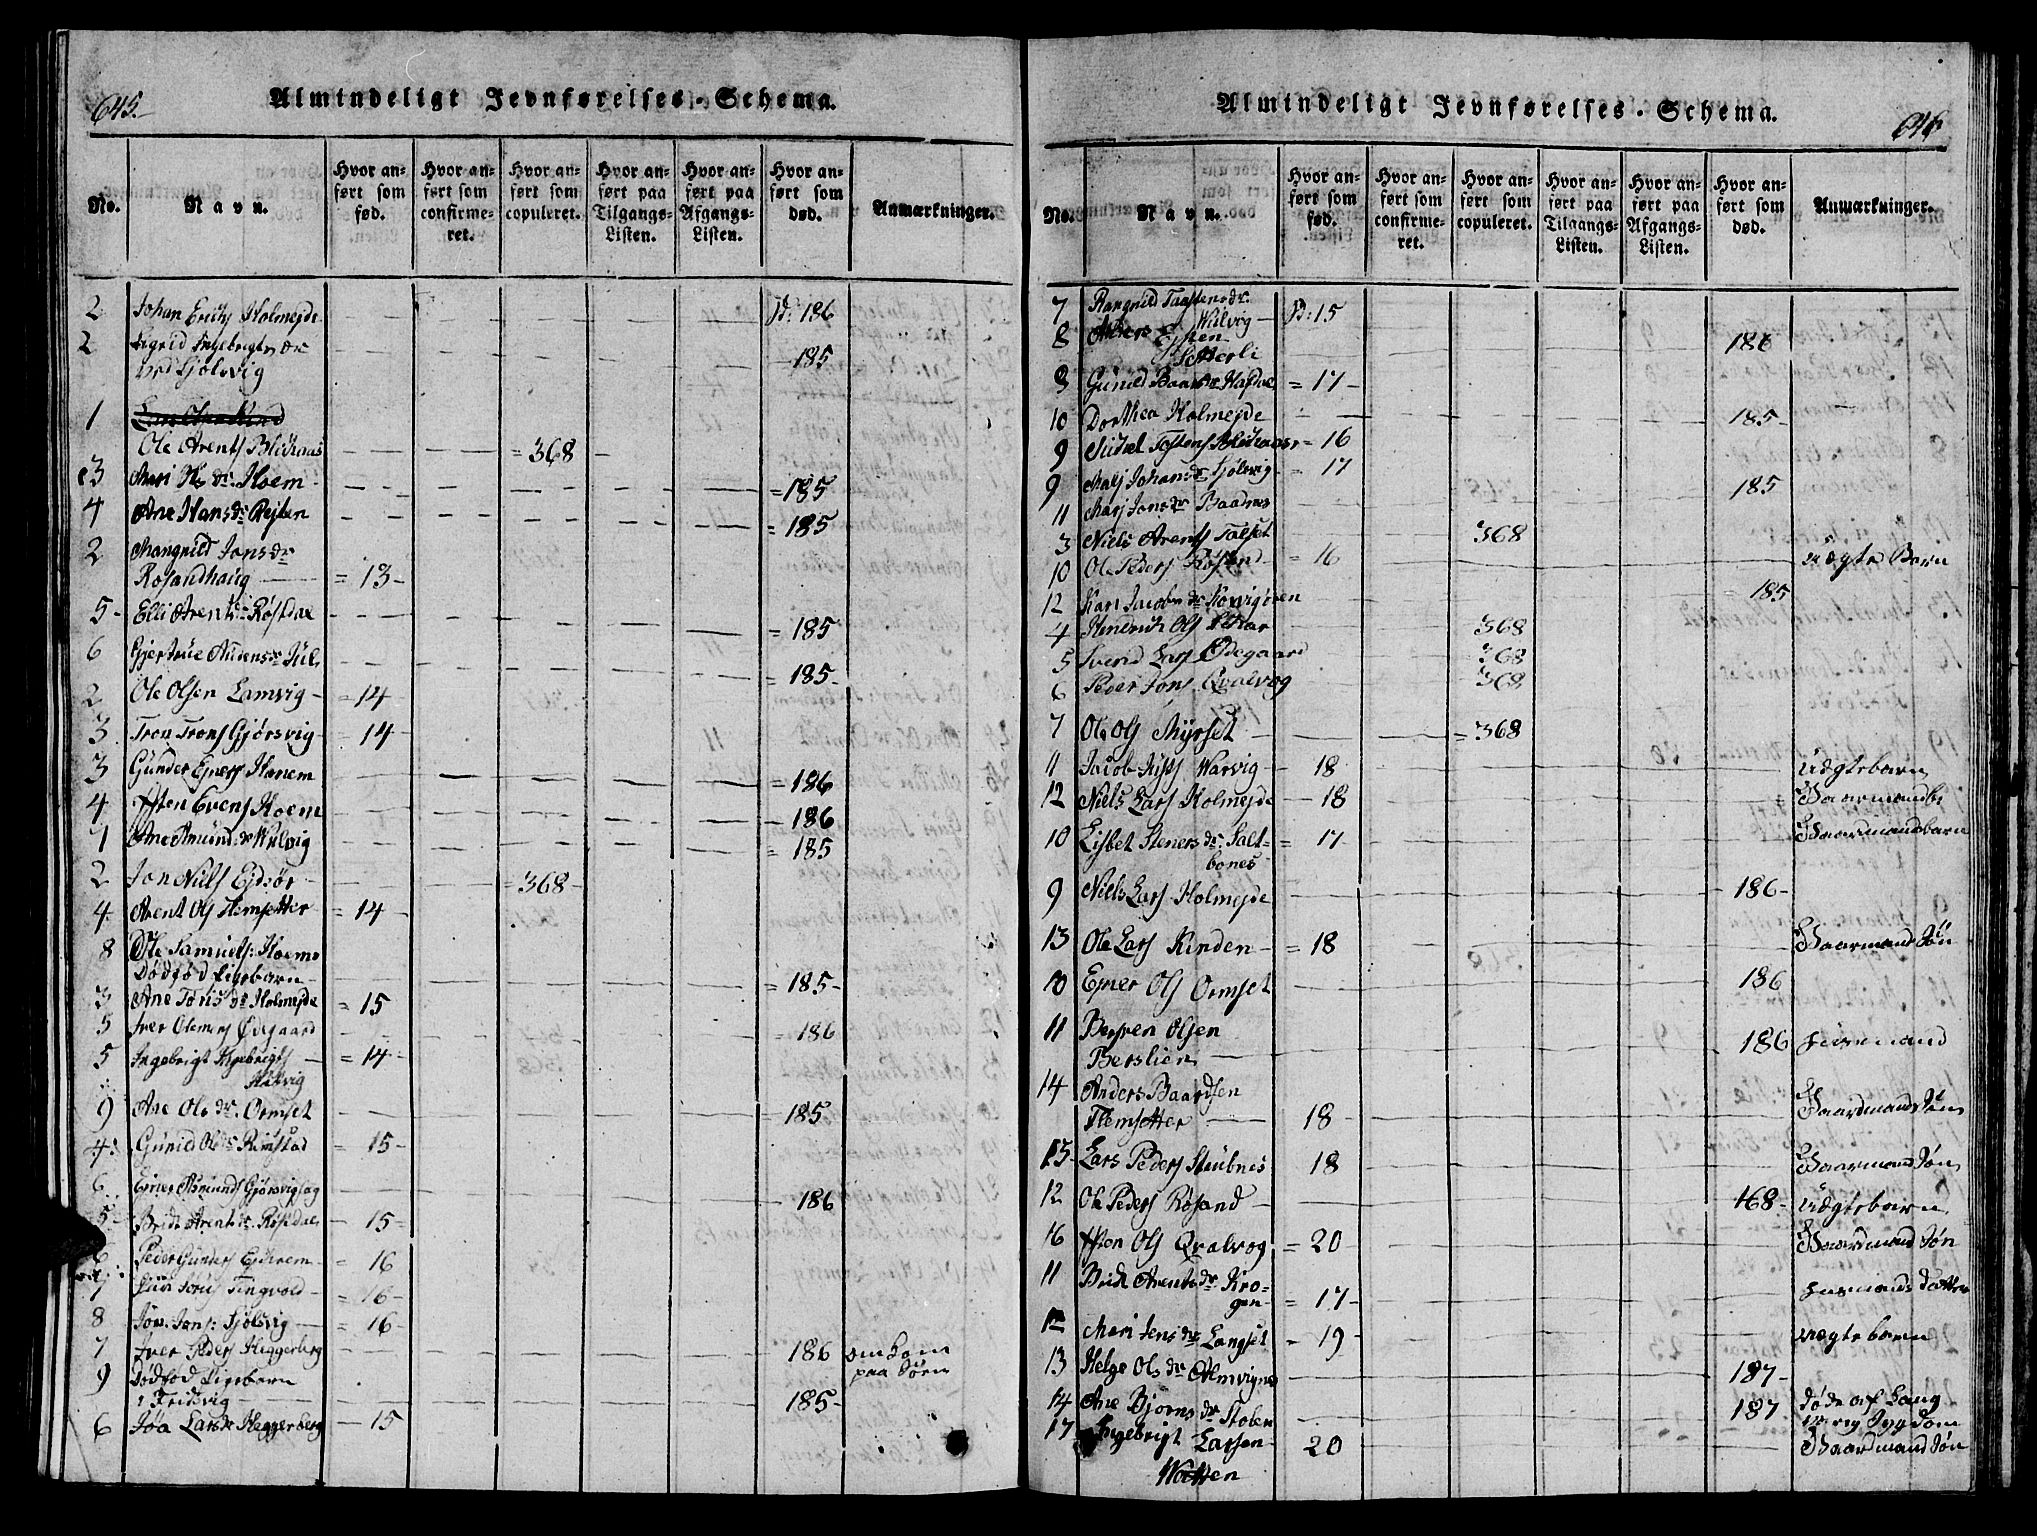 645.
Almindeligt Jevnførelses-Schema.
No.
Navn.
Hvor an-
ført som
fød.
Hvor an-
ført som
confirme-
ret.
Hvor an-
ført som
copuleret.
Hvor an-
ført paa
Tilgangs-
Listen.
Hvor an-
ført paa
Afgangs-
Listen.
Hvor an-
ført som
død.
Anmærkninger.
2 Johan Erichs Holmejde p: 186
2 Sigrid Ingebrigtsdr 185
ved Sjølsvig
1
Ole Arents Blichnæs 368
3 Mari dr. Hoem 185
4 Ane Hansdr Rejten 185
2 Mangnild Jonsdr
Rosandhaug 13
5 Elli Arentsdr Røstdal 185
6 Gjertrue Andersdr Jul 185
2 Ole Olsen Lamvig 14
3 Tron Trons Gjørsvig 14
3 Gunder Ejners Hanem 186
4 Iften Evens Hoem 186
7 Ane Amunds dr Wulvig 185
2 Jon Niels Ejdsør 368
4 Arent Ols Flemsetter 14
8 Ole Samuels: Hoems
Dødfød Pigebarn 185
3 Ane Tørisdr Holmejde 15
5 Iver Olsens Ødegaard 186
5 Ingebrigt Ingebrigts 14
9 Ane Ols dr. Ormset 185
4 Gunild Olsdr Rimstad 15
6 Ejner Asmunds Gjørsvigsag 186
5 Bride Arentsdr. Røstdal 15
6 Peder Gunders Ejdrem 16
7 Tingvold 16
8 Jøn Jons: Sjølsvig 16
7 Iver Peders Heggerberg 186 omkom
paa Søen
9 Dødfød Pigebarn
i Fridsvig 185
6 Jøa Larsdr Heggerberg 15
646
Almindeligt Jevnførelses-Schema.
No.
Navn.
Hvor an-
ført som
fød.
Hvor an-
ført som
confirme-
ret.
Hvor an-
ført som
copuleret.
Hvor an-
ført paa
Tilgangs-
Listen.
Hvor an-
ført paa
Afgangs-
Listen.
Hvor an-
ført som
død.
Anmærkninger.
7 Rangnild Taastensdr.
Wulvig p: 15
8 Iften
Setterli 186
8 Gunild Baarsdr Hafdal 17
10 Dorthea Holmejde 185
9 Sivert Tostens Blichnæs 16
9 Malj Johansdr Sjølsvig 17
11 Marj Jonsdr Baadnes 185
3 Niels Arents Talset 368
10 Ole Peders Røsand 16 uægte Barn
12 Kari Jacobs dr Korsvigøren 185
4 Hendrich Ols 368
5 Svend Lars Ødegaard 368
6 Peder Jons Qvalvog 368
7 Ole Ols Myrset 368
11 Jacob Warvig 18 Uægtebarn
12 Niels Lars Holmejde 18 Gaarmandbs
10 Lisbet Stenersdr. Salt-
bones 17 Gaarmandsbarn
9 Niels Lars Holmejde 186
13 Ole Lars Kinden 18 Gaarmand Søn
10 Ejner Ols Ormset 186
11 Olsen
Berslien 186
14 Anders Baardsen
Flemsetter 18 Gaardmands Søn
15 Lars Peders Stubnes 18 Gaarmand Søn
12 Ole Peders Røsand 168 Uægtebarn
16 Iften Ols Qvalvog 20 Gaardmand Søn
11 Bride Arentsdr Kro-
gen 17
12 Mari Jensdr Langset 19 uægte barn
13 Helge Ols dr Almvignes 187
14 Ane Bjørnsdr Stolen 187 døde af Lang
varig Sygdom
17 Ingebrigt Larsen
Watten 20 Gaardmand Søn